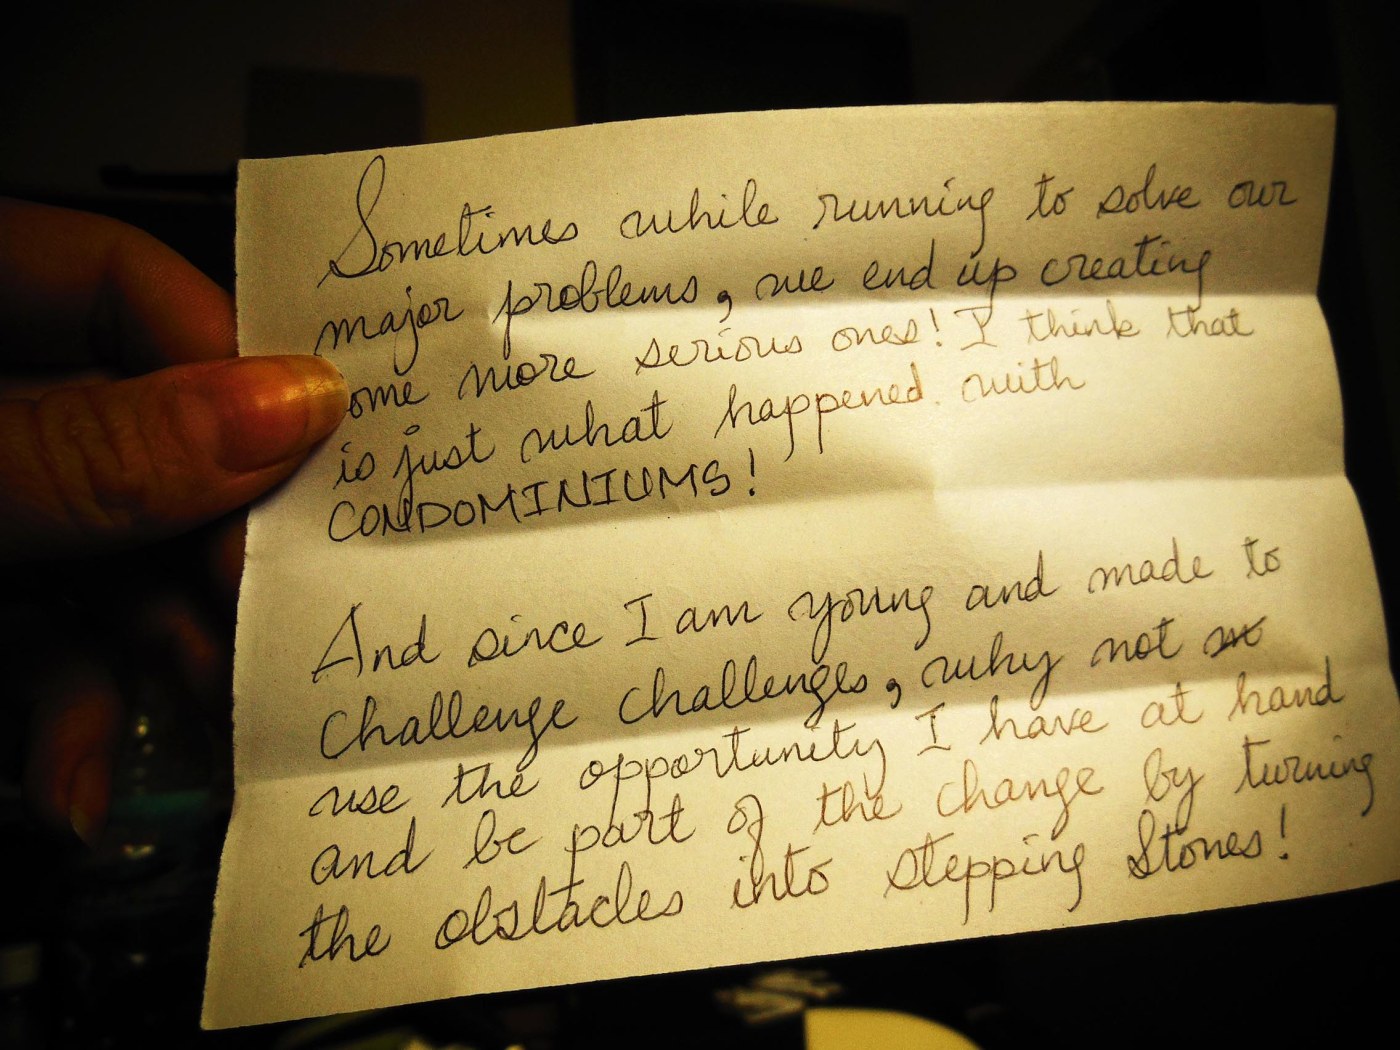 Sometimes while running to solve our
major problems, we end up creating
ome more serious ones! I think that
is just what happened with
CONDOMINIUMS!
And since I am young and made to
challenge challenges, why not
use the opportunity I have at hand
and be part of the change by turning
the obstacles into stepping stones!